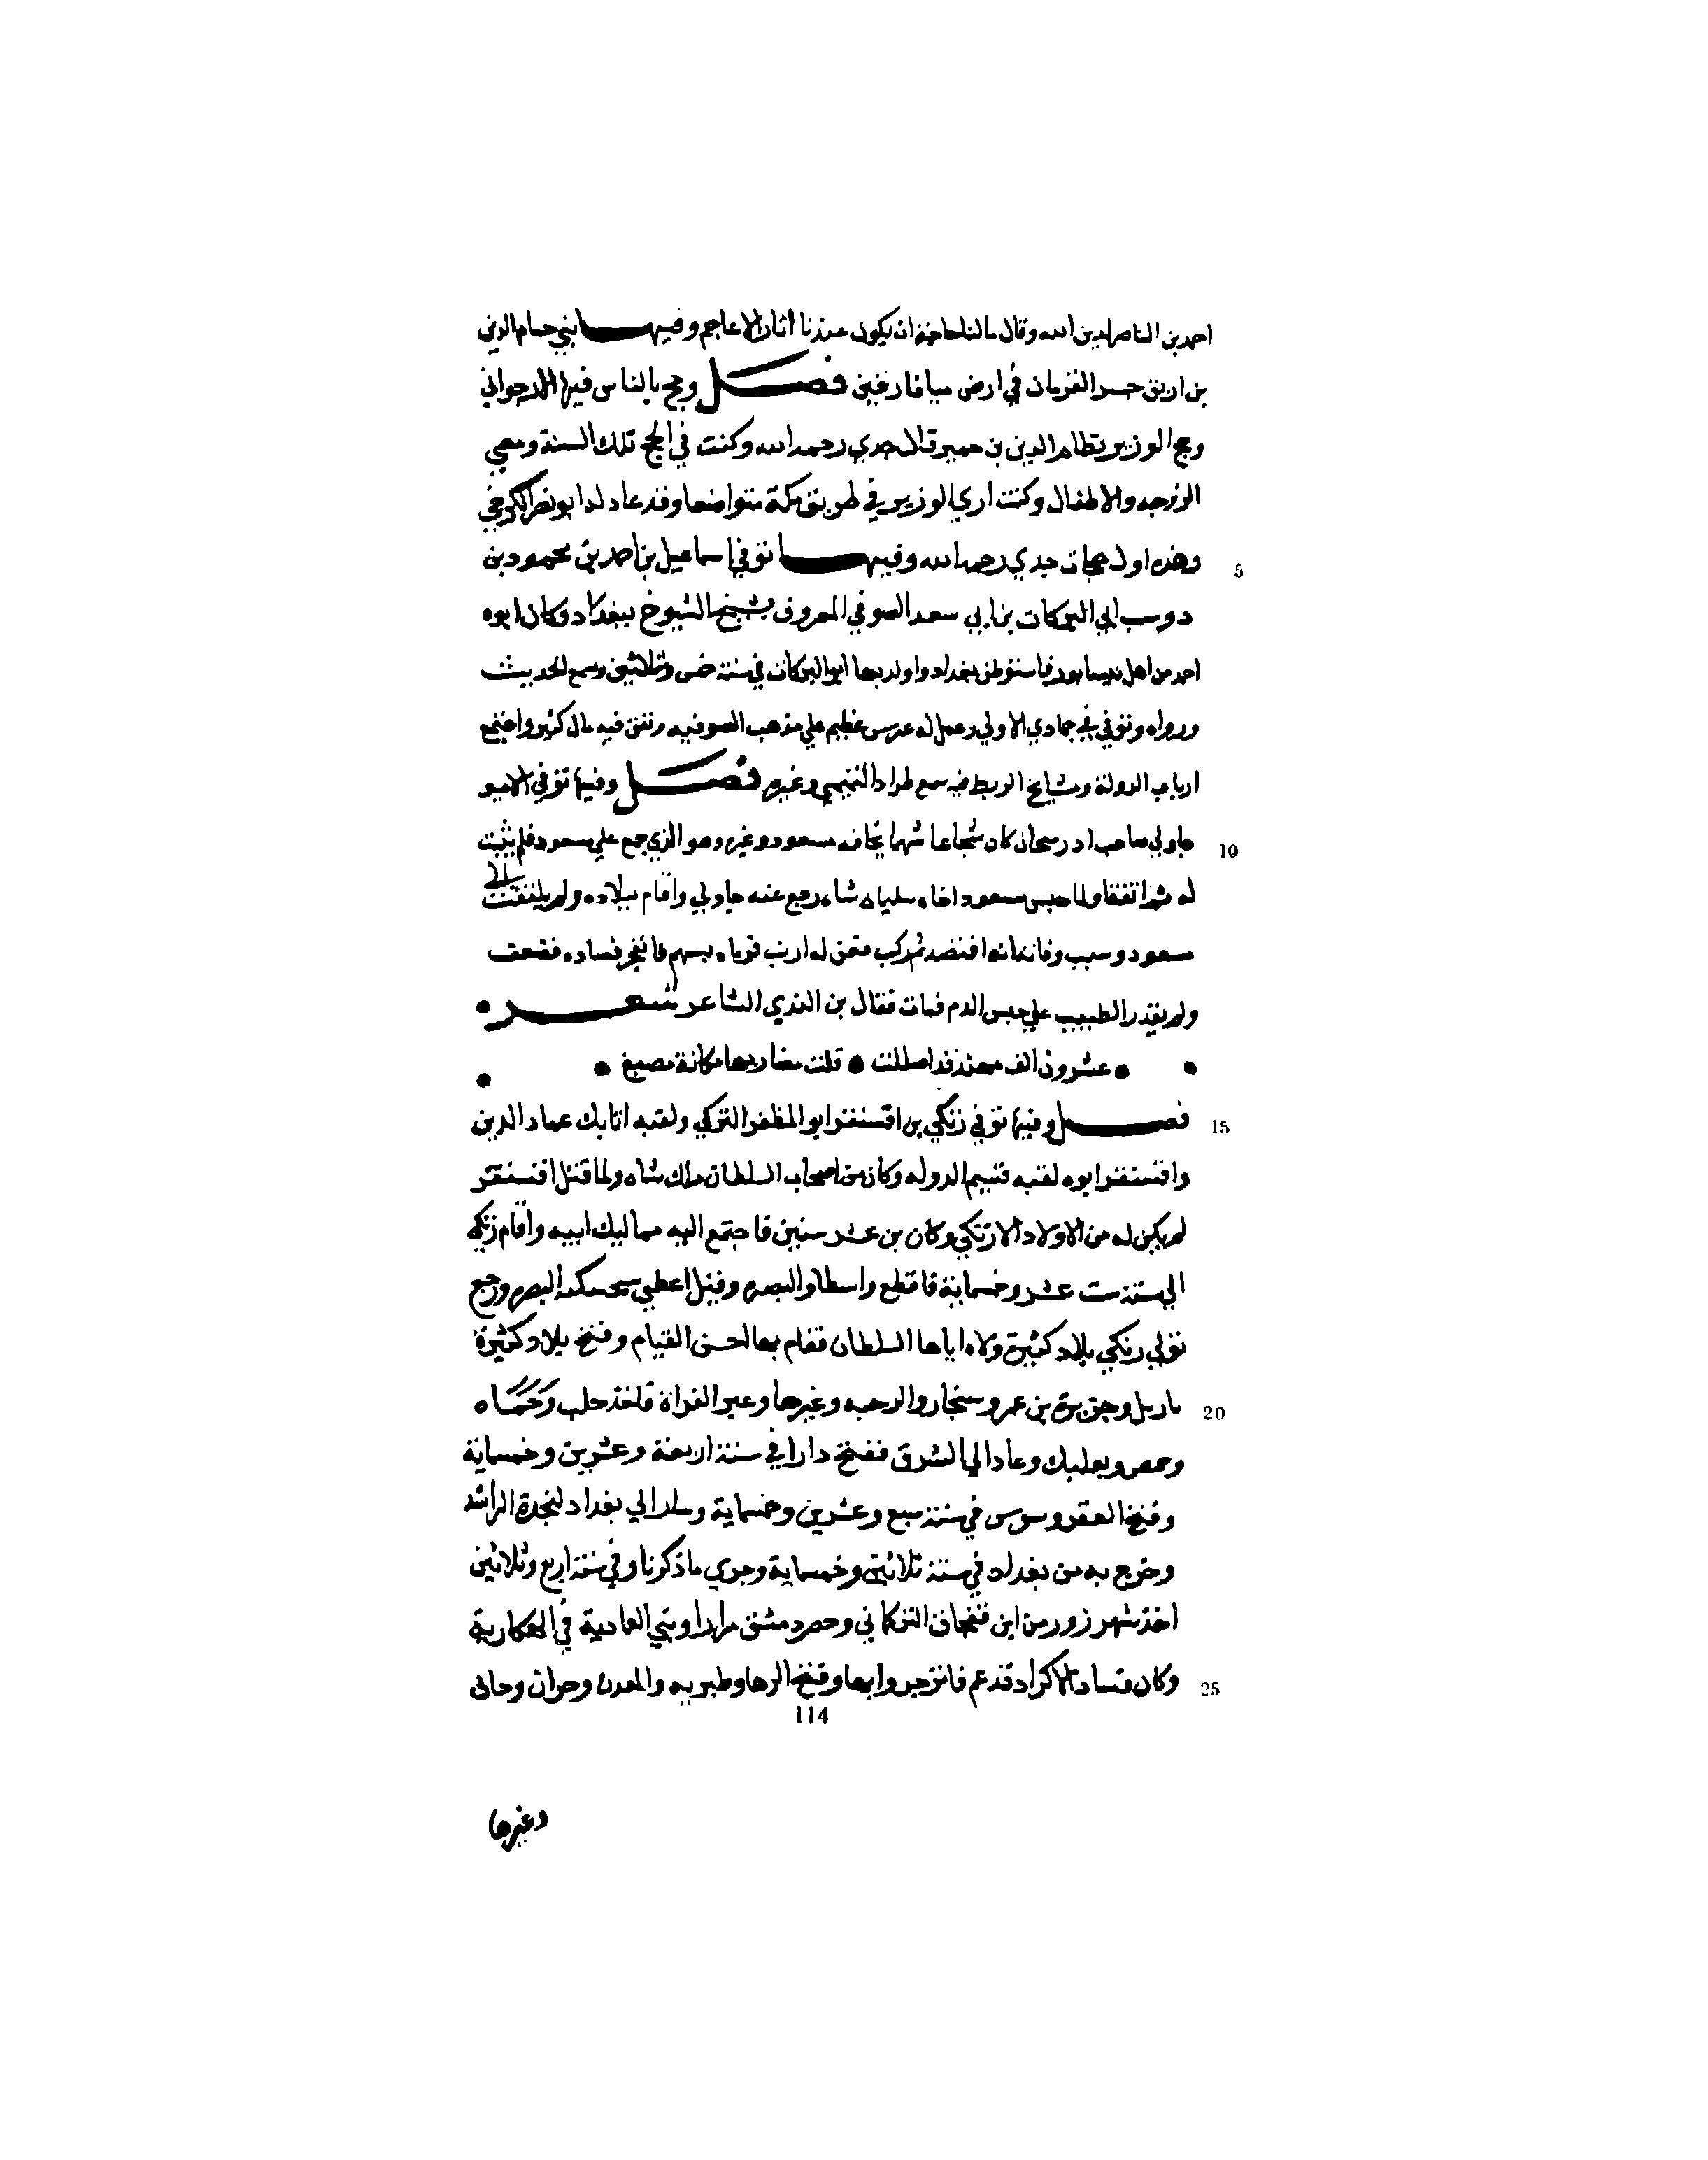 احمد بن الناصر لدين الله وقال ما لنا حاجة ان يكون عندنا اثار الاعاجم وفيها بني حسام الدين
بن ارتق جسر القرمان في ارض ميافارقين فصل وحج بالناس فيها الارجواني
وحج الوزير نظام الدين بن جهير قال جدي رحمه الله وكنت في الحج تلك السنة ومعي
الزوجه والاطفال وكنت اري الوزير في طريق مكة متواضعا وقد عادله ابو نصر الكرخي
وهذه اول حجات جدي رحمه الله وفيها توفي اسماعيل بن احمد بن محمود بن
دوست ابي البركات بن ابي سعد الصوفي المعروف بشيخ الشيوخ ببغداد وكان ابوه
احد من اهل نيسابور فاستوطن بغداد واولد بها ابو البركات في سنة خمس وثلاثين وسمع الحديث
ورواه وتوفي في جمادي الاولي وعمل له عرس عظيم علي مذهب الصوفيه ونفق فيه مال كثير واجتمع
ارباب الدولة ومشايخ الربط فيه سمع طراد التميمي وغيره فصل وفيها توفي الامير
جاولي صاحب ادربيجان كان شجاعا شهما يخافه مسعود وغيره وهو الذي جمع علي مسعود فلم يثبت
له ثم اتفقا ولما حبس مسعود اخاه سليمان شاه رجع عنه جاولي واقام ببلاده ولم يلتفت الي
مسعود وسبب وفاته انه افتصد ثم ركب فعن له ارنب فرماه بسهم فانفجر فصاده فضعف
ولم يقدر الطبيب علي حبس الدم فمات فقال بن الشاعر شعر
عشرون الف مهند قد اصللت • قلت مضاربها مكانة مصبغ •
فصل وفيها توفي زنكي بن اقسنقر ابو المظفر التركي ولقبه اتابك عماد الدين
واقسنقر ابوه لقبه قسيم الدوله وكان من اصحاب السلطان ملك شاه ولما قتل اقسنقر
لم يكن له من الاولاد الا زنكي وكان بن عشر سنين فاجتمع اليه مماليك ابيه واقام زنكي
الي سنة ست عشر وخمساية فاقطع واسطا والبصره وقيل اعطي شحنكيه البصره ورجع
تولي زنكي بلاد كثيرة ولاه اياها السلطان فقام بها احسن القيام وفتح بلاد كثيرة
باربل وجزيرة بن عمر وسنجار والرحبه وغيرها وعبر الفراة فاخذ حلب وحماه
وحمص وبعلبك وعاد الي الشرق ففتح دارا في سنة اربعة وعشرين وخمساية
وفتح العقر وسوس في سنة سبع وعشرين وخمساية وسار الي بغداد لنجدة الراشد
وخرج به من بغداد في سنة ثلاثين وخمساية وجري ما ذكرنا وفي سنة اربع وثلاثين
اخذ شهرزور من ابن قفجاق التركماني وحصر دمشق مرارا وبني العمادية في الهكارية
وكان فساد الاكراد قد عم فانزجروا بها وفتح الرها وطبريه والمعدن وحران وحاني
5
10
15
20
25
114
وغيرها